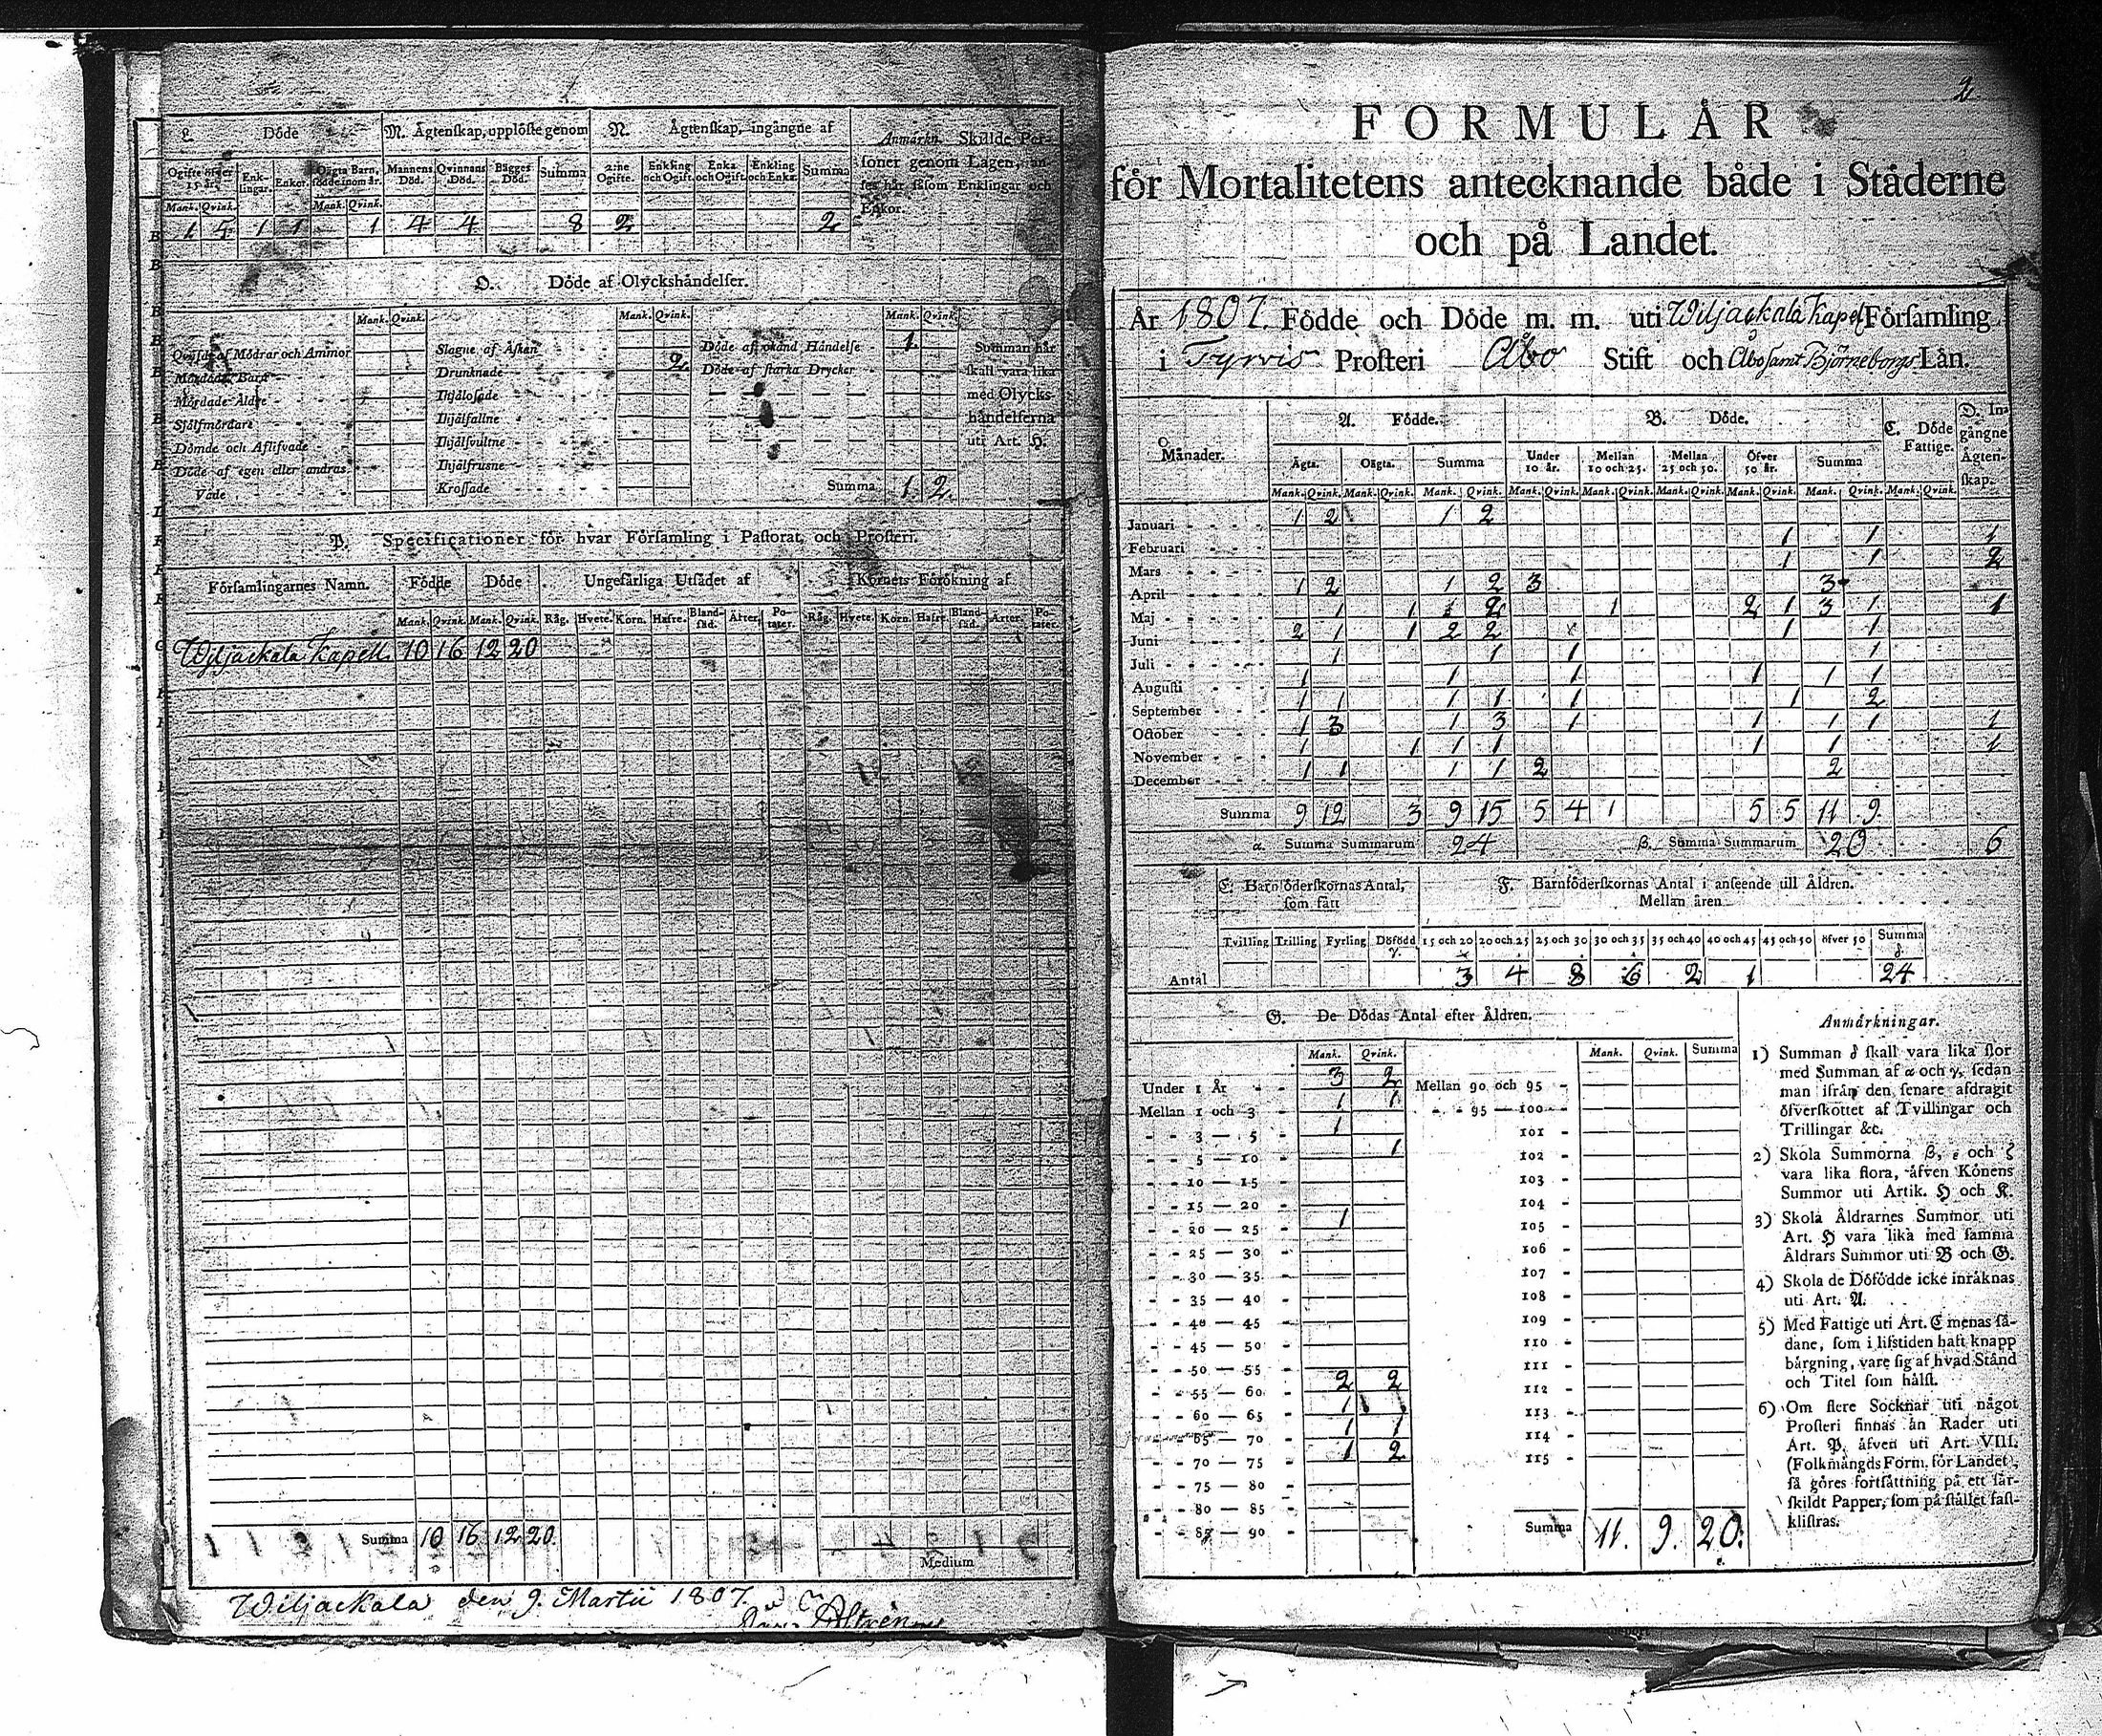 L. Döde
M. Ägtenskap, upplöste genom
N. Ägtenskap, ingångne af
Anmärkn. Skillde Per-
soner genom Lagen, an-
ses här såsom Enklingar och
Enkor.
Ogifte öfver 15 år. Enk-lingar. Enkor. Oägta Barn, födde inom år. Mannens Död. Qvinnans Död. Bägges Död. Summa 2:ne Ogifte. Enkling och Ogift. Enka och Ogift. Enkling och Enka. Summa
Mank. Qvink. Mank. Qvink.
1 5 1 1 1 4 4 8 2 2
O. Döde af Olyckshändelser.
Mank. Qvink. Mank. Qvink. Mank. Qvink.
Qväfde af Mödrar och Ammor
Mördade Barn
Mördade Äldre
Sjelfmördare
Dömde och Aflifvade
Döde af egen eller andras
Våde
Slagne af Åskan
Drunknade 2
Ihjälosade
Ihjälfallne
Ihjälsvultne
Ihjälfrusne
Krossade
Döde af okänd Händelse 1.
Döde af starka Drycker
Summa 1. 2.
Summan här
skall vara lika
med Olycks-
händelserna
uti Art. H.
P. Specificationer för hvar Församling i Pastorat, och Prosteri.
Församlingarnes Namn. Födde Döde Ungefärliga Utsädet af Kornets Förökning af
Mank. Qvink. Mank. Qvink. Råg. Hvete. Korn. Hafre. Bland-säd. Ärter. Po-tater. Råg. Hvete. Korn. Hafre. Bland-säd. Ärter. Po-tater.
Wiljackala Kapell. 10 16 12 20
Summa 10 16 12 20.
Medium
Wiljackala den 9. Martii 1807.
2
FORMULÄR
för Mortalitetens antecknande både i Städerne
och på Landet.
År 1807. Födde och Döde m. m. uti Wiljackala Kapell Församling
i Tyrvis Prosteri Åbo Stift och Åbo samt Björneborgs Län.
Månader. A. Födde. B. Döde. C. Döde Fattige. D. In-gångne Ägten-skap.
Ägta. Oägta. Summa Under 10 år. Mellan 10 och 25. Mellan 25 och 50. Öfver 50 år. Summa
Mank. Qvink. Mank. Qvink. Mank. Qvink. Mank. Qvink. Mank. Qvink. Mank. Qvink. Mank. Qvink. Mank. Qvink. Mank. Qvink.
Januari 1 2 1 2
Februari 1 1 1
Mars 1 1 2
April 1 2 1 2 3 3
Maj 1 1 2 1 2 1 3 1 1
Juni 2 1 1 2 2 1 1
Juli 1 1 1 1
Augusti 1 1 1 1 1 1
September 1 1 1 1 1 1 2
October 1 3 1 3 1 1 1 1 1
November 1 1 1 1 1 1 1
December 1 1 1 1 2 2
Summa 9 12 3 9 15 5 4 1 5 5 11 9.
α. Summa Summarum 24 β. Summa Summarum 20 6
E. Barnföderskornas Antal,
som fått
F. Barnföderskornas Antal i anseende till Åldren.
Mellan åren
Tvilling Trilling Fyrling Döfödd γ. 15 och 20 20 och 25 25 och 30 30 och 35 35 och 40 40 och 45 45 och 50 öfver 50 Summa δ.
Antal 3 4 8 6 2 1 24
G. De Dödas Antal efter Åldren.
Mank. Qvink. Mank. Qvink. Summa
Under 1 År 3 2 Mellan 90 och 95
Mellan 1 och 3 1 1 95 — 100
3 — 5 1 101
5 — 10 1 102
10 — 15 103
15 — 20 104
20 — 25 1 105
25 — 30 106
30 — 35 107
35 — 40 108
40 — 45 109
45 — 50 110
50 — 55 111
55 — 60 2 2 112
60 — 65 1 113
65 — 70 1 1 114
70 — 75 1 2 115
75 — 80
80 — 85
85 — 90 Summa 11. 9. 20.
Anmärkningar.
1) Summan δ skall vara lika stor
med Summan af α och γ, sedan
man ifrån den senare afdragit
öfverskottet af Tvillingar och
Trillingar &c.
2) Skola Summorna β, ε och ζ
vara lika stora, äfven Könens
Summor uti Artik. H och K.
3) Skola Åldrarnes Summor uti
Art. H vara lika med samma
Åldrars Summor uti B och G.
4) Skola de Döfödde icke inräknas
uti Art. A.
5) Med Fattige uti Art. C menas så-
dane, som i lifstiden haft knapp
bärgning, vare sig af hvad Stånd
och Titel som hälst.
6) Om flere Socknar uti något
Prosteri finnas än Rader uti
Art. P, äfven uti Art. VIII.
(Folkmängds Form. för Landet),
så göres fortsättning på ett sär-
skildt Papper, som på stället fast-
klistras.